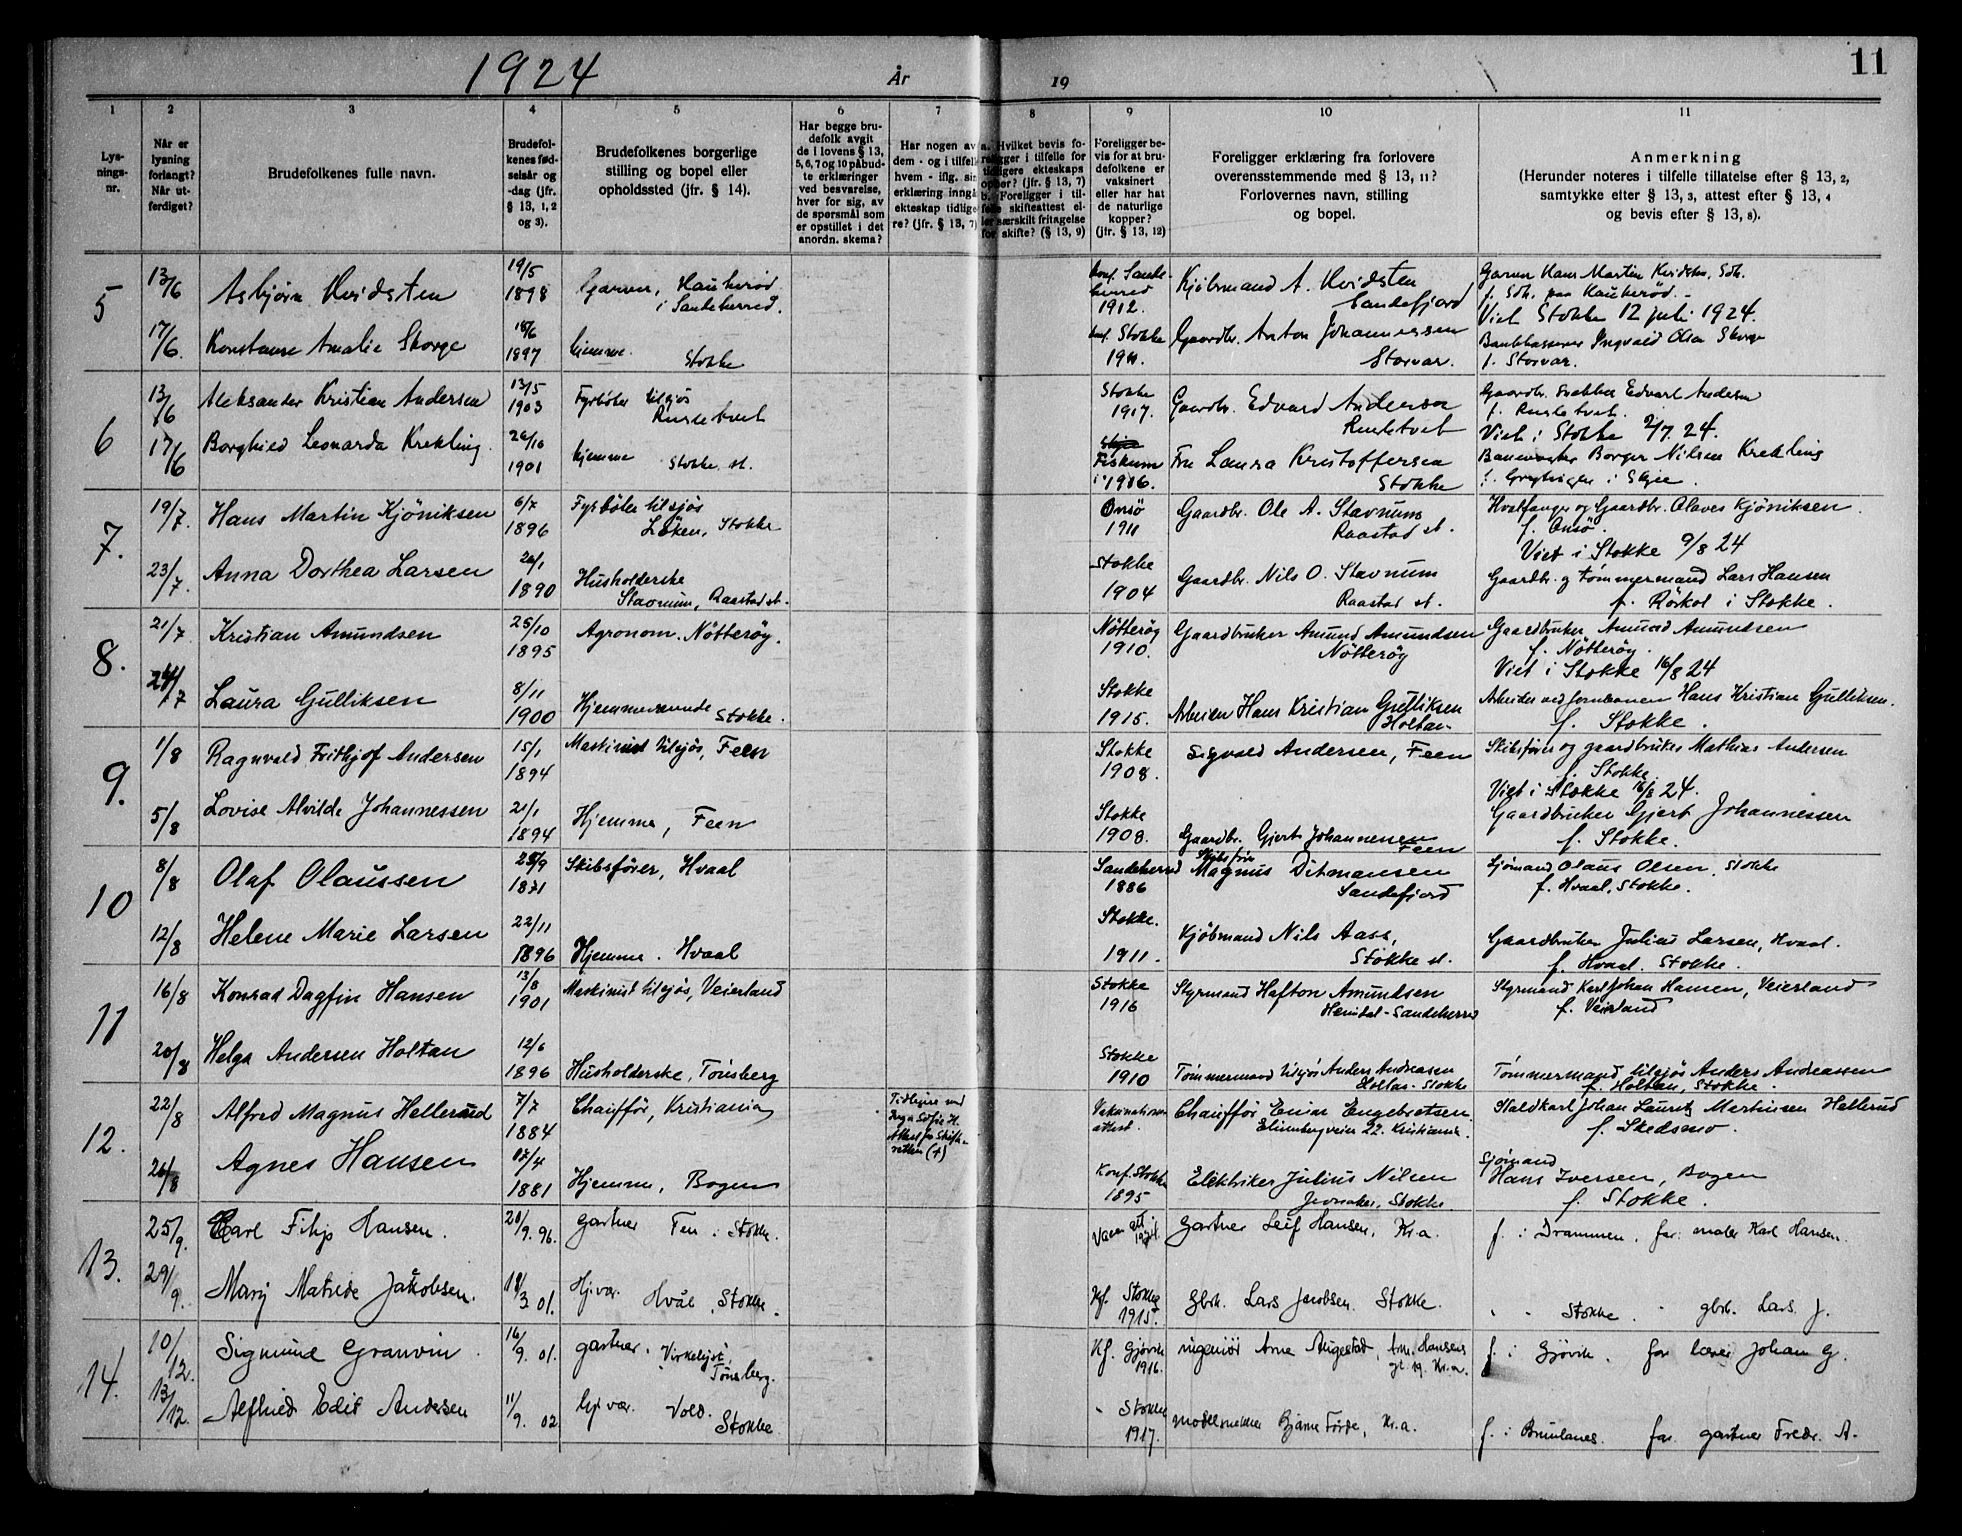 1924
År
19
11
1
2
3
4
5
6
7
8
9
10
11
Lys-
nings-
nr.
Når er
lysning
forlangt?
Når ut-
ferdiget?
Brudefolkenes fulle navn.
Brudefol-
kenes fød-
selsår og
-dag (jfr.
§ 13, 1, 2
og 3).
Brudefolkenes borgerlige
stilling og bopel eller
opholdssted (jfr. § 14).
Har begge bru-
defolk avgit
de i lovens § 13,
5, 6, 7 og 10 påbud-
te erklæringer
ved besvarelse,
hver for sig, av
de spørsmål som
er opstillet i det
anordn. skema?
Har nogen av
dem - og i tilfelle
hvem - iflg. sin
erklæring inngå
ekteskap tidlige
re? (jfr. § 13, 7)
a. Hvilket bevis fo-
religger i tilfelle for
tidligere ekteskaps
ophør? (jfr. § 13, 7)
b. Foreligger i til-
felle skifteattest el-
ler særskilt fritagelse
for skifte? (§ 13, 9)
Foreligger be-
vis for at bru-
defolkene er
vaksinert
eller har hat
de naturlige
kopper?
(jfr. § 13, 12)
Foreligger erklæring fra forlovere
overensstemmende med § 13, 11?
Forlovernes navn, stilling
og bopel.
Anmerkning
(Herunder noteres i tilfelle tillatelse efter § 13, 2,
samtykke efter § 13, 3, attest efter § 13, 4
og bevis efter § 13, 8).
5
13/6
Asbjørn Hvidsten
19/5
1898
Garver, Haukerød
i Sandeherred.
Konf. Sande-
herred
1912.
Kjøbmand A. Hvidsten
Sandefjord
Garver Hans Martin Hvidsten, Sdh.
f. Sdh. paa Haukerød.
Viet Stokke 12 juli 1924.
17/6.
Konstanse Amalie Skorge
1897
hjemme.
Stokke
Konf. Stokke
1911.
Gaardbr. Anton Johannessen
Storvar.
Ingvald Olsen Skorge
f. Storvar.
6
13/6
Aleksander Kristian Andersen
13/5
1903
Fyrbøter tilsjøs
Rustetvet
Stokke
1917.
Gaardbr. Edvard Andersen
Rustetvet
Gaardbr. Edvart Andersen
f. Rustetvet.
Viet i Stokke 2/7 24.
17/6
Borghild Leonarda Krekling.
26/10
1901
hjemme
Stokke st.
Fiskum
i 1916.
Fru Laura Kristoffersen
Stokke
Banevogter Borger Nilsen Krekling
f. i Skjee.
7.
19/7.
Hans Martin Kjöniksen
6/7
1896
Fyrböter tilsjös
Löken, Stokke
Onsö
1911
Gaardbr. Ole A. Stavnum
Raastad st.
Hvalfanger og Gaardbr. Olaves Kjöniksen.
f. Onsö.
Viet i Stokke 9/8 24
23/7.
Anna Dorthea Larsen
1890
Husholderske
Stavnum, Raastad st.
Stokke
1904
Gaardbr. Nils O. Stavnum
Raastad st.
Gaardbr. og tömmermand Lars Hansen
f. Rörkol i Stokke.
8.
21/7.
Kristian Amundsen
25/10
1895
Agronom. Nötteröy.
Nötteröy
1910.
Gaardbruker Amund Amundsen
Nötteröy
Gaardbruker Amund Amundsen
f. Nötteröy.
Viet i Stokke 16/8 24
24/7
Laura Gulliksen
8/11
1900
Hjemmeværende Stokke.
Stokke
1915.
Arbeider Hans Kristian Gulliksen
Holtan
Arbeider ved jernbanen Hans Kristian Gulliksen.
f. Stokke.
9.
1/8
Ragnvald Fridtjof Andersen
15/1
1894
Maskinist tilsjös, Feen
Stokke
1908.
Sigvald Andersen, Feen
Skibsförer og gaardbruker Mathias Andersen
f. Stokke
Viet i Stokke 16/8 24.
5/8
Lovise Alvilde Johannessen
21/1
1894
Hjemme, Feen
Stokke
1908.
Gaardbr. Gjert Johannesen
Feen
Gaardbruker Gjert Johannessen
f. Stokke.
10
8/8
Olaf Olaussen
25/9
1871
Skibsförer, Hvaal
Sandeherred
1886
Skibsförer
Magnus Ditmansen
Sandefjord
Sjömand Olaus Olsen, Stokke
f. Hvaal, Stokke.
12/8
Helene Marie Larsen
22/11
1896
Hjemme. Hvaal
Stokke.
1911.
Kjöbmand Nils Aass,
Stokke st.
Gaardbruker Julius Larsen, Hvaal.
f. Hvaal. Stokke.
11
16/8
Konrad Dagfin Hansen
13/8
1901
Maskinist tilsjös, Veierland
Stokke
1916
Styrmand Hafton Amundsen
Hemdal - Sandeherred
Styrmand Karl Johan Hansen, Veierland
f. Veierland
20/8
Helga Andersen Holtan
12/6
1896
Husholderske, Tönsberg
Stokke
1910
Tömmermand tilsjös Anders Andreassen
Holtan - Stokke
Tömmermand tilsjös Anders Andreassen
f. Holtan, Stokke.
12.
22/8
Alfred Magnus Hellerud
7/7
1884
Chaufför, Kristiania
Tidligere med
Sofie H.
Attest fra Skifte-
retten (+)
Vaksinations
attest.
Chaufför Einar Engebretsen
Elisenbergveien 22. Kristiania.
Staldkarl Johan Lauritz Martinsen Hellerud
f. Skedsmo.
26/8
Agnes Hansen
17/4
1881
Hjemme, Bogen
Konf. Stokke
1895
Elektriker Julius Nilsen
Jevnaker, Stokke
Sjömand
Hans Iversen, Bogen
f. Stokke.
13.
25/9.
Carl Filip Hansen.
20/9. 96.
gartner Fen i Stokke.
Vaccn att.
gartner Leif Hansen, Kr.a.
f. i Drammen. far: maler Karl Hansen.
29/9.
Mary Matilde Jakobsen.
11/3 01.
Hj.vær. Hvål, Stokke.
Kf. Stokke
1915.
gbrk. Lars Jacobsen. Stokke.
" " Stokke " gbrk. Lars J.
14.
10/12.
Sigmund Granvin.
16/9. 01.
gartner. Virkelyst,
Tönsberg.
Kf. Gjövik
1916.
ingeniör Arne Augestad, Arne Hansens
gt. 19. Kr.a.
f. i Gjövik. far lærer Johan G.
13/12.
Alfhild Edit Andersen
11/9. 02
Hj.vær. Vold.
Stokke
" Stokke
1917.
modelsnekker Bjarne Förde, Kr.a.
f. i Brunlanes. far gartner Fredr. A.